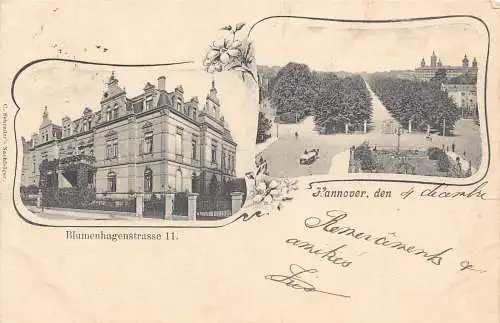 C. Schrader's Nachfolger.
Hannover, den 4 décembre
Blumenhagenstrasse 11.
Remerciements &
amitiés